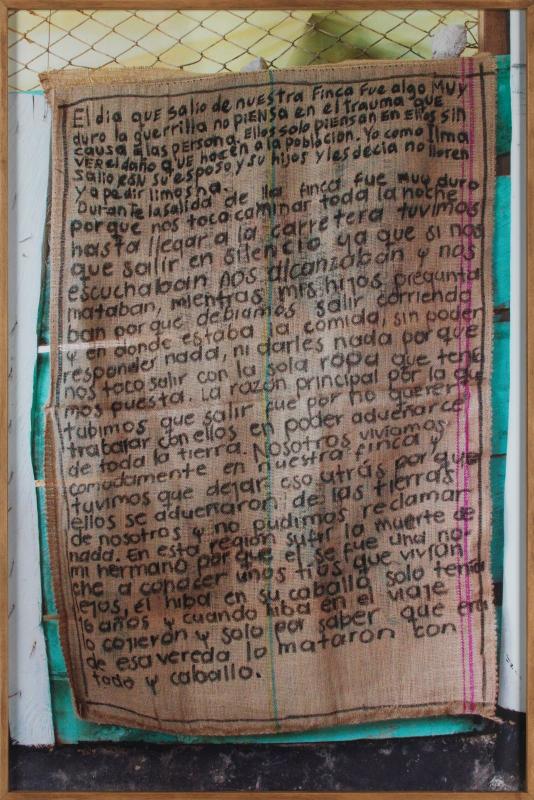 El dia que salio de nuestra Finca Fue algo Muy
duro la guerrilla no piensa en el trauma que
causa a las persona. Ellos solo piensan en Ellos sin
VER el daño que hacen a la poblacion. Yo como Ilma
salio con su esposo y su hijos y les decia no lloren
y a pedir limosna.
Durante la salida de la finca fue muy duro
porque nos toca caminar toda la noche
hasta llegar a la carretera tuvimos
que salir en silencio ya que si nos
escuchaban nos alcanzaban y nos
mataban, mientras mis hijos pregunta
ban porque debiamos salir corriendo
y en donde estaba la comida, sin poder
responder nada, ni darles nada porque
nos toco salir con la sola ropa que tení
mos puesta. La razón principal por la que
tubimos que salir fue por no querer
trabajar con ellos en poder adueñarce
de toda la tierra. Nosotros viviamos
comodamente en nuestra finca y
tuvimos que dejar eso atrás porque
ellos se adueñaron de las tierras
de nosotros y no pudimos reclamar
nada. En esta región sufrí la muerte de
mi hermano porque el se fue una no-
che a conocer unos tios que vivian
lejos, él hiba en su caballo solo tenia
16 años y cuando hiba en el viaje
lo cojieron y solo por saber que era
de esa vereda lo mataron con
todo y caballo.